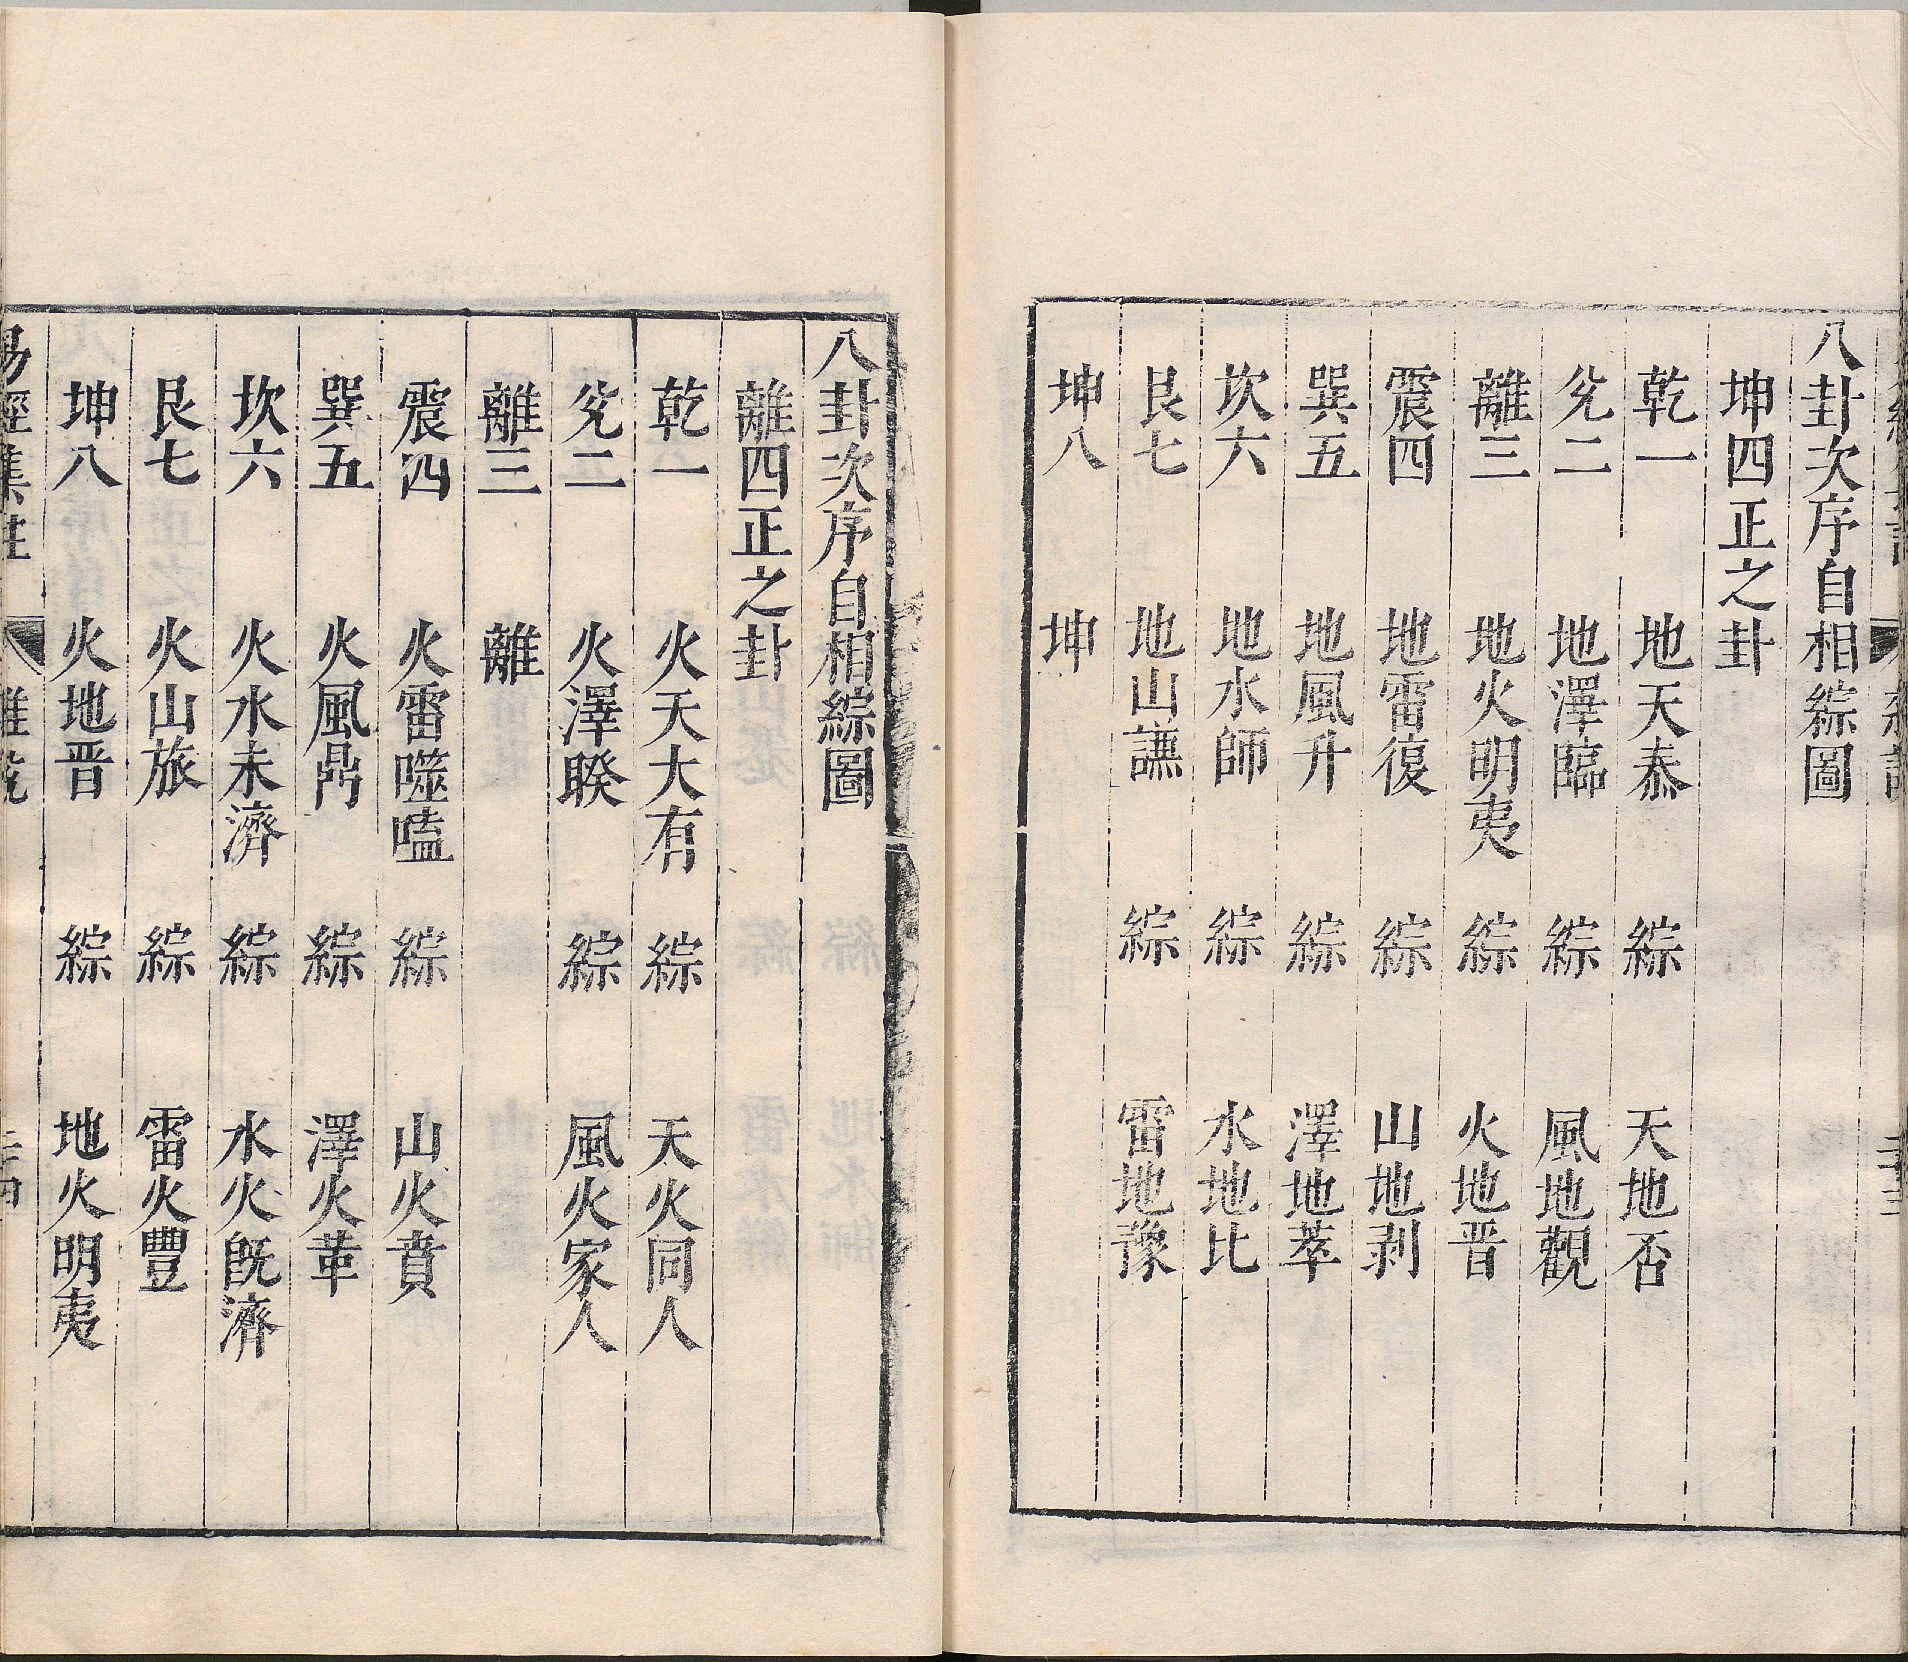 八卦次序自相綜圖
坤四正之卦
乾一 地天泰 綜 天地否
兌二 地澤臨 綜 風地觀
離三 地火明夷 綜 火地晋
震四 地雷復 綜 山地剥
巽五 地風升 綜 澤地萃
坎六 地水師 綜 水地比
艮七 地山謙 綜 雷地豫
坤八 坤
八卦次序自相綜圖
離四正之卦
乾一 火天大有 綜 天火同人
兌二 火澤睽 綜 風火家人
離三 離
震四 火雷噬嗑 綜 山火賁
巽五 火風鼎 綜 澤火革
坎六 火水未濟 綜 水火旣濟
艮七 火山旅 綜 雷火豐
坤八 火地晋 綜 地火明夷
易經集註